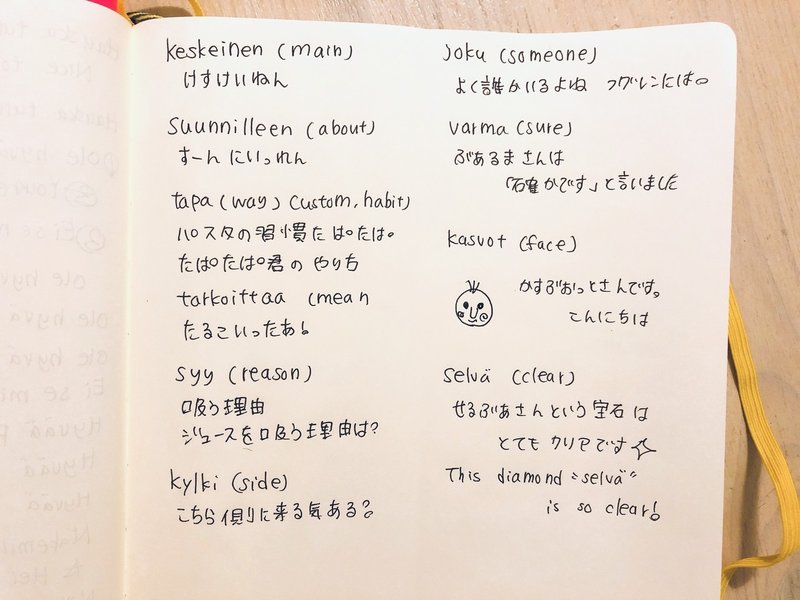 keskeinen (main)
けすけいねん
suunnilleen (about)
すーんにいっれん
tapa (way) (custom, habit)
パスタの習慣たぱたぱ。
たぱたぱ君のやり方
tarkoittaa (mean
たるこいったあ!
syy (reason)
吸う理由
ジュースを吸う理由は?
kylki (side)
こちら側に来る気ある?
Joku (someone)
よく誰かいるよね フグレンには。
varma (sure)
ぶあるまさんは
「確かです」と言いました
kasvot (face)
かすぶおっとさんです。
こんにちは
selvä (clear)
せるぶあさんという宝石は
とてもクリアです
This diamond "selvä"
is so clear!
ole hyvä
ole hyvä
ole hyvä
Ei se mi
Hyvää p
Hyvää
Hyvä